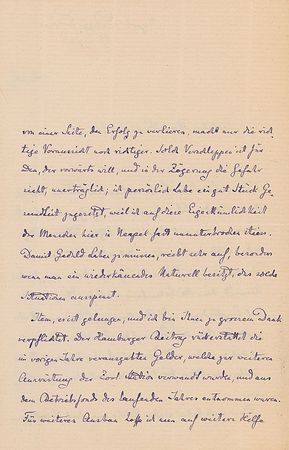 von einer Seite, den Erfolg zu verlieren, macht nur die rich-
tige Voraussicht noch richtiger. Solch Verschleppen ist für
Den, der vorwärts will, und in der Zögerung die Gefahr
sieht, unerträglich; ich persönlich habe ein gut Stück Ge-
sundheit zugesetzt, weil ich auf diese Eigenthümlichkeit
der Menschen hier in Neapel fast ununterbrochen stiess.
Damit Geduld haben zu müssen, reibt sehr auf, besonders
wenn man ein wiederkäuendes Naturell besitzt, das solche
Situationen ausspinnt.
Item, es ist gelungen, und ich bin Ihnen zu grossem Dank
verpflichtet. Der Hamburger Beitrag rückerstattet die
im vorigen Jahre verausgabten Gelder, welche zur weiteren
Ausrüstung der Zool. Station verwandt wurden, und aus
dem Betriebsfonds des laufenden Jahres entnommen waren.
Für weiteren Ausbau hoffe ich nun auf weitere Hilfe